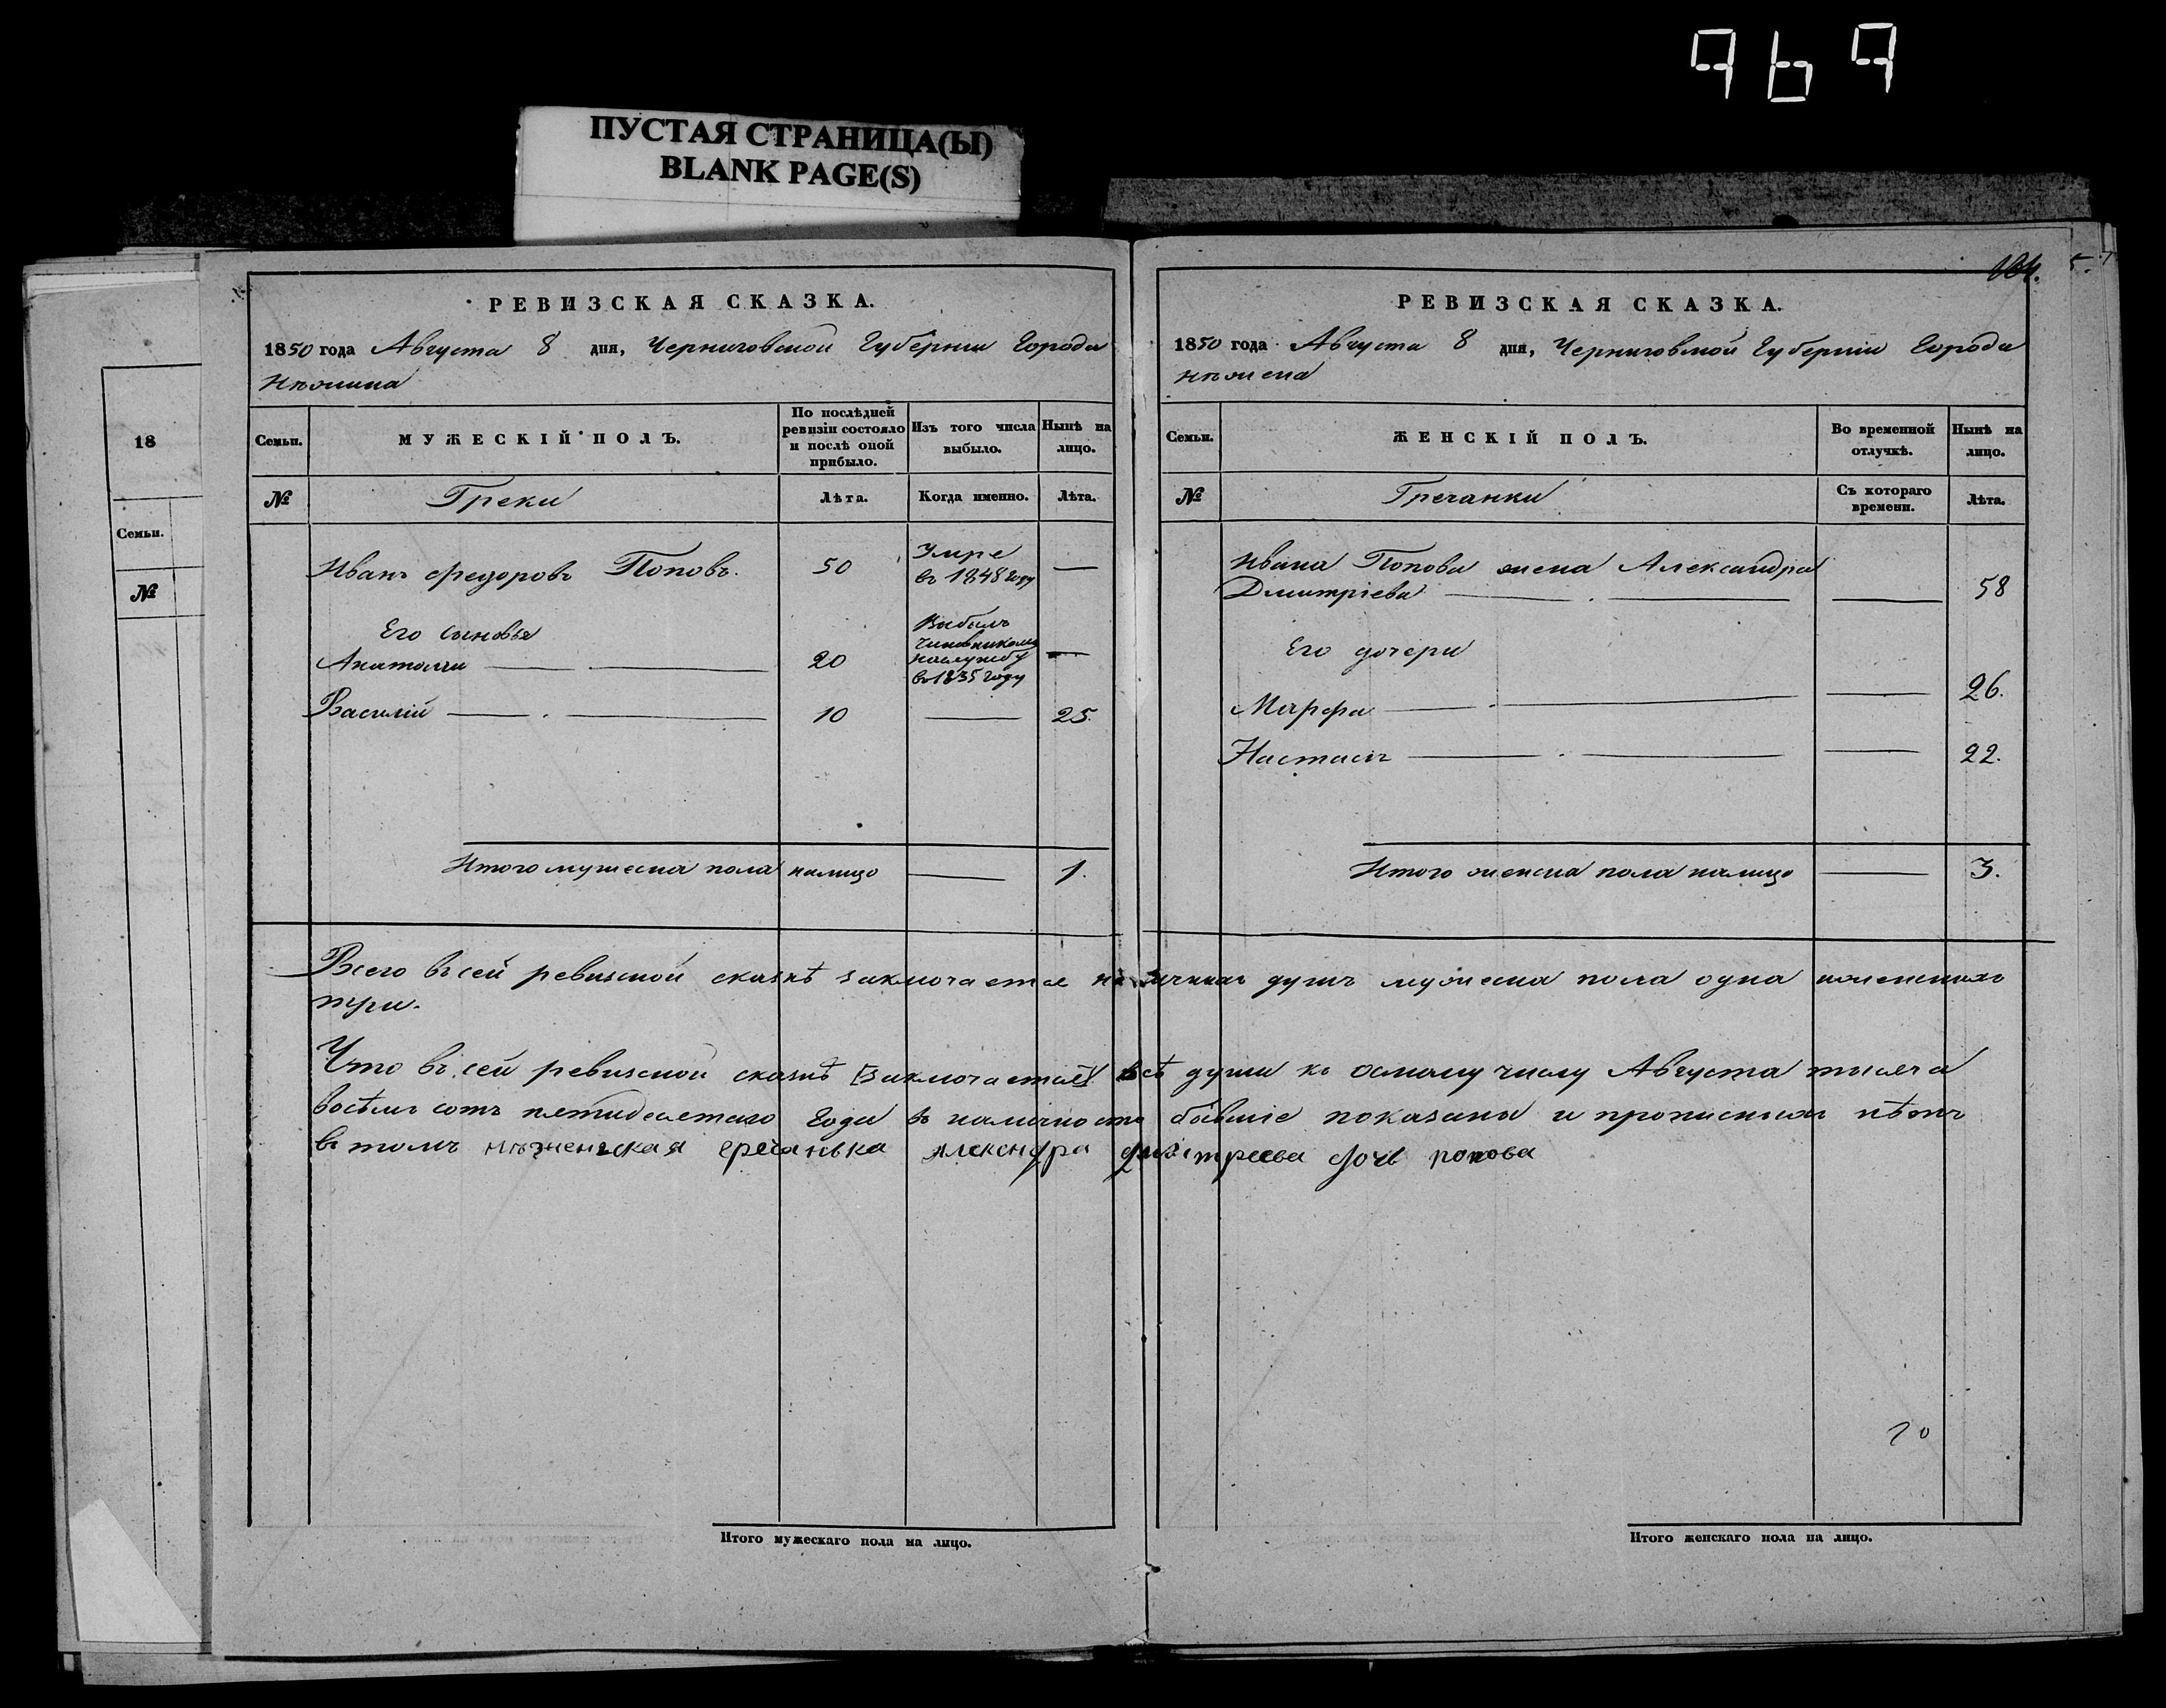 969
ПУСТАЯ СТРАНИЦА(Ы)
BLANK PAGE(S)
18
Семьи.
№
РЕВИЗСКАЯ СКАЗКА.
1850 года Августа 8 дня, Черниговской Губернии Города
Нѣжина
Семьи.
МУЖЕСКІЙ ПОЛЪ.
По послѣдней ревизіи состояло и послѣ оной прибыло.
Изъ того числа выбыло.
Нынѣ на лицо.
№
Греки
Лѣта.
Когда именно.
Лѣта.
Иванъ Федоровъ Поповъ. 50 Умре въ 1848 году —
Его сыновья
Анатолій — 20 Выбылъ чиновникомъ на службу въ 1835 году —
Василій — 10 — 25.
Итого мужеска пола налицо — 1.
РЕВИЗСКАЯ СКАЗКА.
1850 года Августа 8 дня, Черниговской Губерніи Города
Нѣжина
Семьи.
ЖЕНСКІЙ ПОЛЪ.
Во временной отлучкѣ.
Нынѣ на лицо.
№
Гречанки
Съ котораго времени.
Лѣта.
Ивана Попова жена Александра
Дмитріева — — 58
Его дочери
Марфа — — 26.
Настасія — — 22.
Итого женска пола налицо — 3.
Всего въ сей ревизской сказкѣ заключается наличныхъ душъ мужеска пола одна и женскихъ
три.
Что въ сей ревизской сказкѣ заключается всѣ души къ осмому числу Августа тысяча
восѣмъ сотъ пятидесятаго года въ наличности бывшіе показаны и прописныхъ нѣтъ
в томъ нѣженьская гречанька александра дмитреева дочь попова
20
Итого мужескаго пола на лицо.
Итого женскаго пола на лицо.